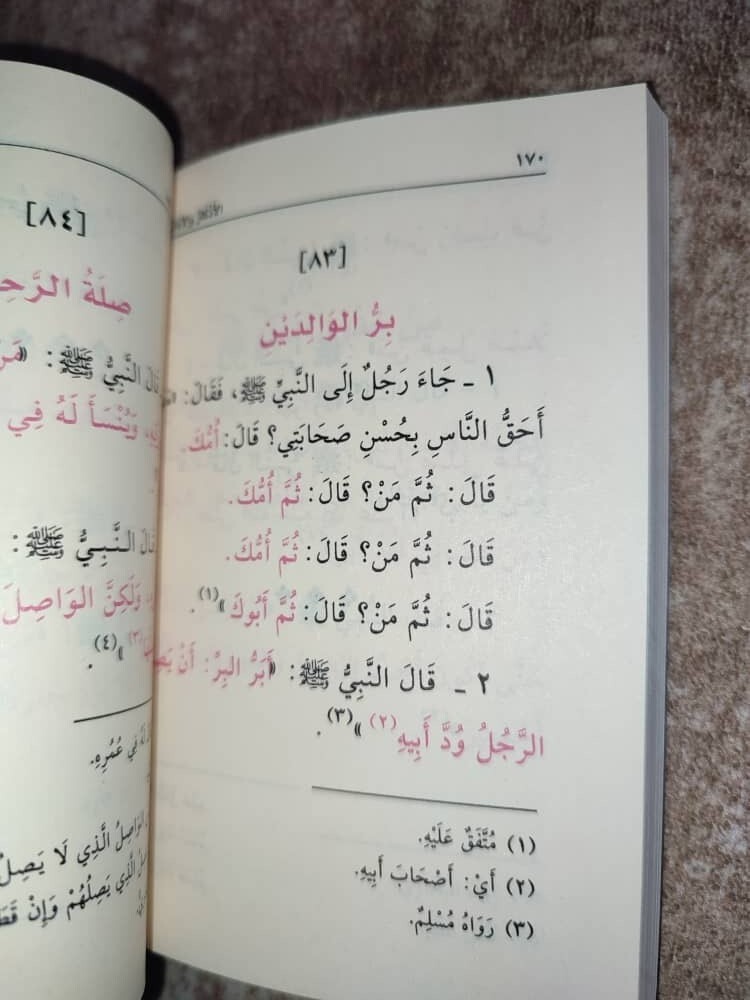 ١٧٠
[٨٣]
بِرُّ الوَالِدَيْنِ
١ ـ جَاءَ رَجُلٌ إِلَى النَّبِيِّ ﷺ، فَقَالَ:
أَحَقُّ النَّاسِ بِحُسْنِ صَحَابَتِي؟ قَالَ: أُمُّكَ.
قَالَ: ثُمَّ مَنْ؟ قَالَ: ثُمَّ أُمُّكَ.
قَالَ: ثُمَّ مَنْ؟ قَالَ: ثُمَّ أُمُّكَ.
قَالَ: ثُمَّ مَنْ؟ قَالَ: ثُمَّ أَبُوكَ»(١).
٢ ـ قَالَ النَّبِيُّ ﷺ: «أَبَرُّ البِرِّ: أَنْ
الرَّجُلُ وُدَّ أَبِيهِ(٢)»(٣).
(١) مُتَّفَقٌ عَلَيْهِ.
(٢) أَيْ: أَصْحَابَ أَبِيهِ.
(٣) رَوَاهُ مُسْلِمٌ.
[٨٤]
صِلَةُ
قَالَ النَّبِيُّ ﷺ:
وَيُنْسَأَ لَهُ فِي
قَالَ النَّبِيُّ ﷺ:
وَلَكِنَّ الوَاصِلَ
(٣)»(٤).
فِي عُمُرِهِ.
الوَاصِلُ الَّذِي لَا
الَّذِي يَصِلُهُمْ وَإِنْ